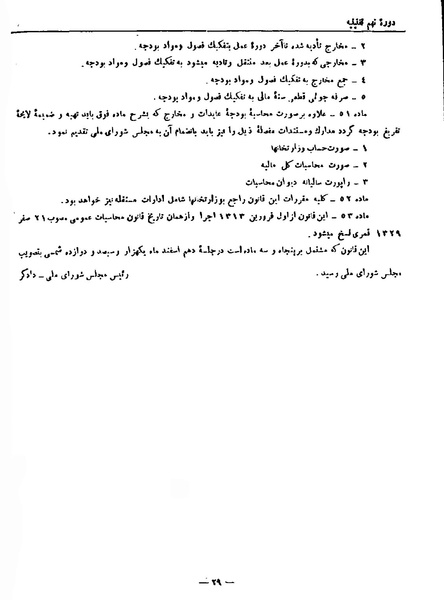 دورهٔ نهم تقنینیه
۲ ـ مخارج تأدیه شده تاآخر دورهٔ عمل بتفکیك فصول ومواد بودجه .
۳ ـ مخارجی که بدورهٔ عمل بعد منتقل وتادیه میشود به تفکیك فصول ومواد بودجه .
۴ ـ جمع مخارج به تفکیك فصول ومواد بودجه .
۵ ـ صرفه جوئی قطعی سنهٔ مالی به تفکیك فصول ومواد بودجه .
ماده ۵۱ ـ علاوه برصورت محاسبهٔ بودجهٔ عایدات و مخارج که بشرح ماده فوق باید تهیه و ضمیمهٔ لایحهٔ
تفریغ بودجه گردد مدارك ومستندات مفصلهٔ ذیل را نیز باید بانضمام آن به مجلس شورای ملی تقدیم نمود.
۱ ـ صورت‌حساب وزارتخانها
۲ ـ صورت محاسبات کل مالیه
۳ ـ راپورت سالیانه دیوان محاسبات
ماده ۵۲ ـ کلیه مقررات این قانون راجع بوزارتخانها شامل ادارات مستقله نیز خواهد بود.
ماده ۵۳ ـ این قانون ازاول فروردین ۱۳۱۳ اجرا وازهمان تاریخ قانون محاسبات عمومی مصوب ۲۱ صفر
۱۳۲۹ قمری نسخ میشود.
این قانون که مشتمل برپنجاه و سه ماده است درجلسهٔ دهم اسفند ماه یکهزار وسیصد و دوازده شمسی بتصویب
مجلس شورای ملی رسید. رئیس مجلس شورای ملی ـ دادگر
ـ ۲۹ ـ